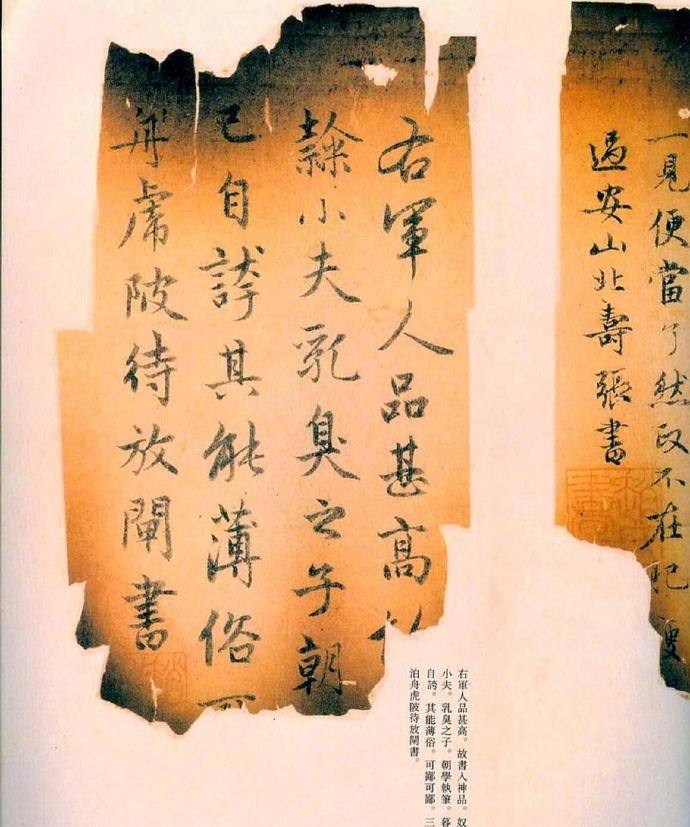 一見便當了然政不在肥瘦
過安山北壽張書
右軍人品甚高故
隸小夫乳臭之子朝
已自誇其能薄俗可
舟虎陂待放閘書
右軍人品甚高。故書入神品。奴
小夫。乳臭之子。朝學執筆。暮
自誇。其能薄俗。可鄙可鄙。三
泊舟虎陂待放閘書。